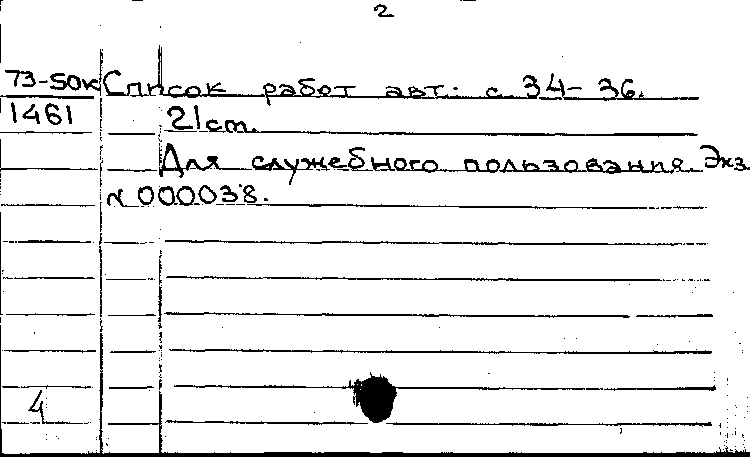 2
73-50к Список работ авт.: с. 34-36.
1461 21 cm.
Для служебного пользования. Экз.
N 000038.
4